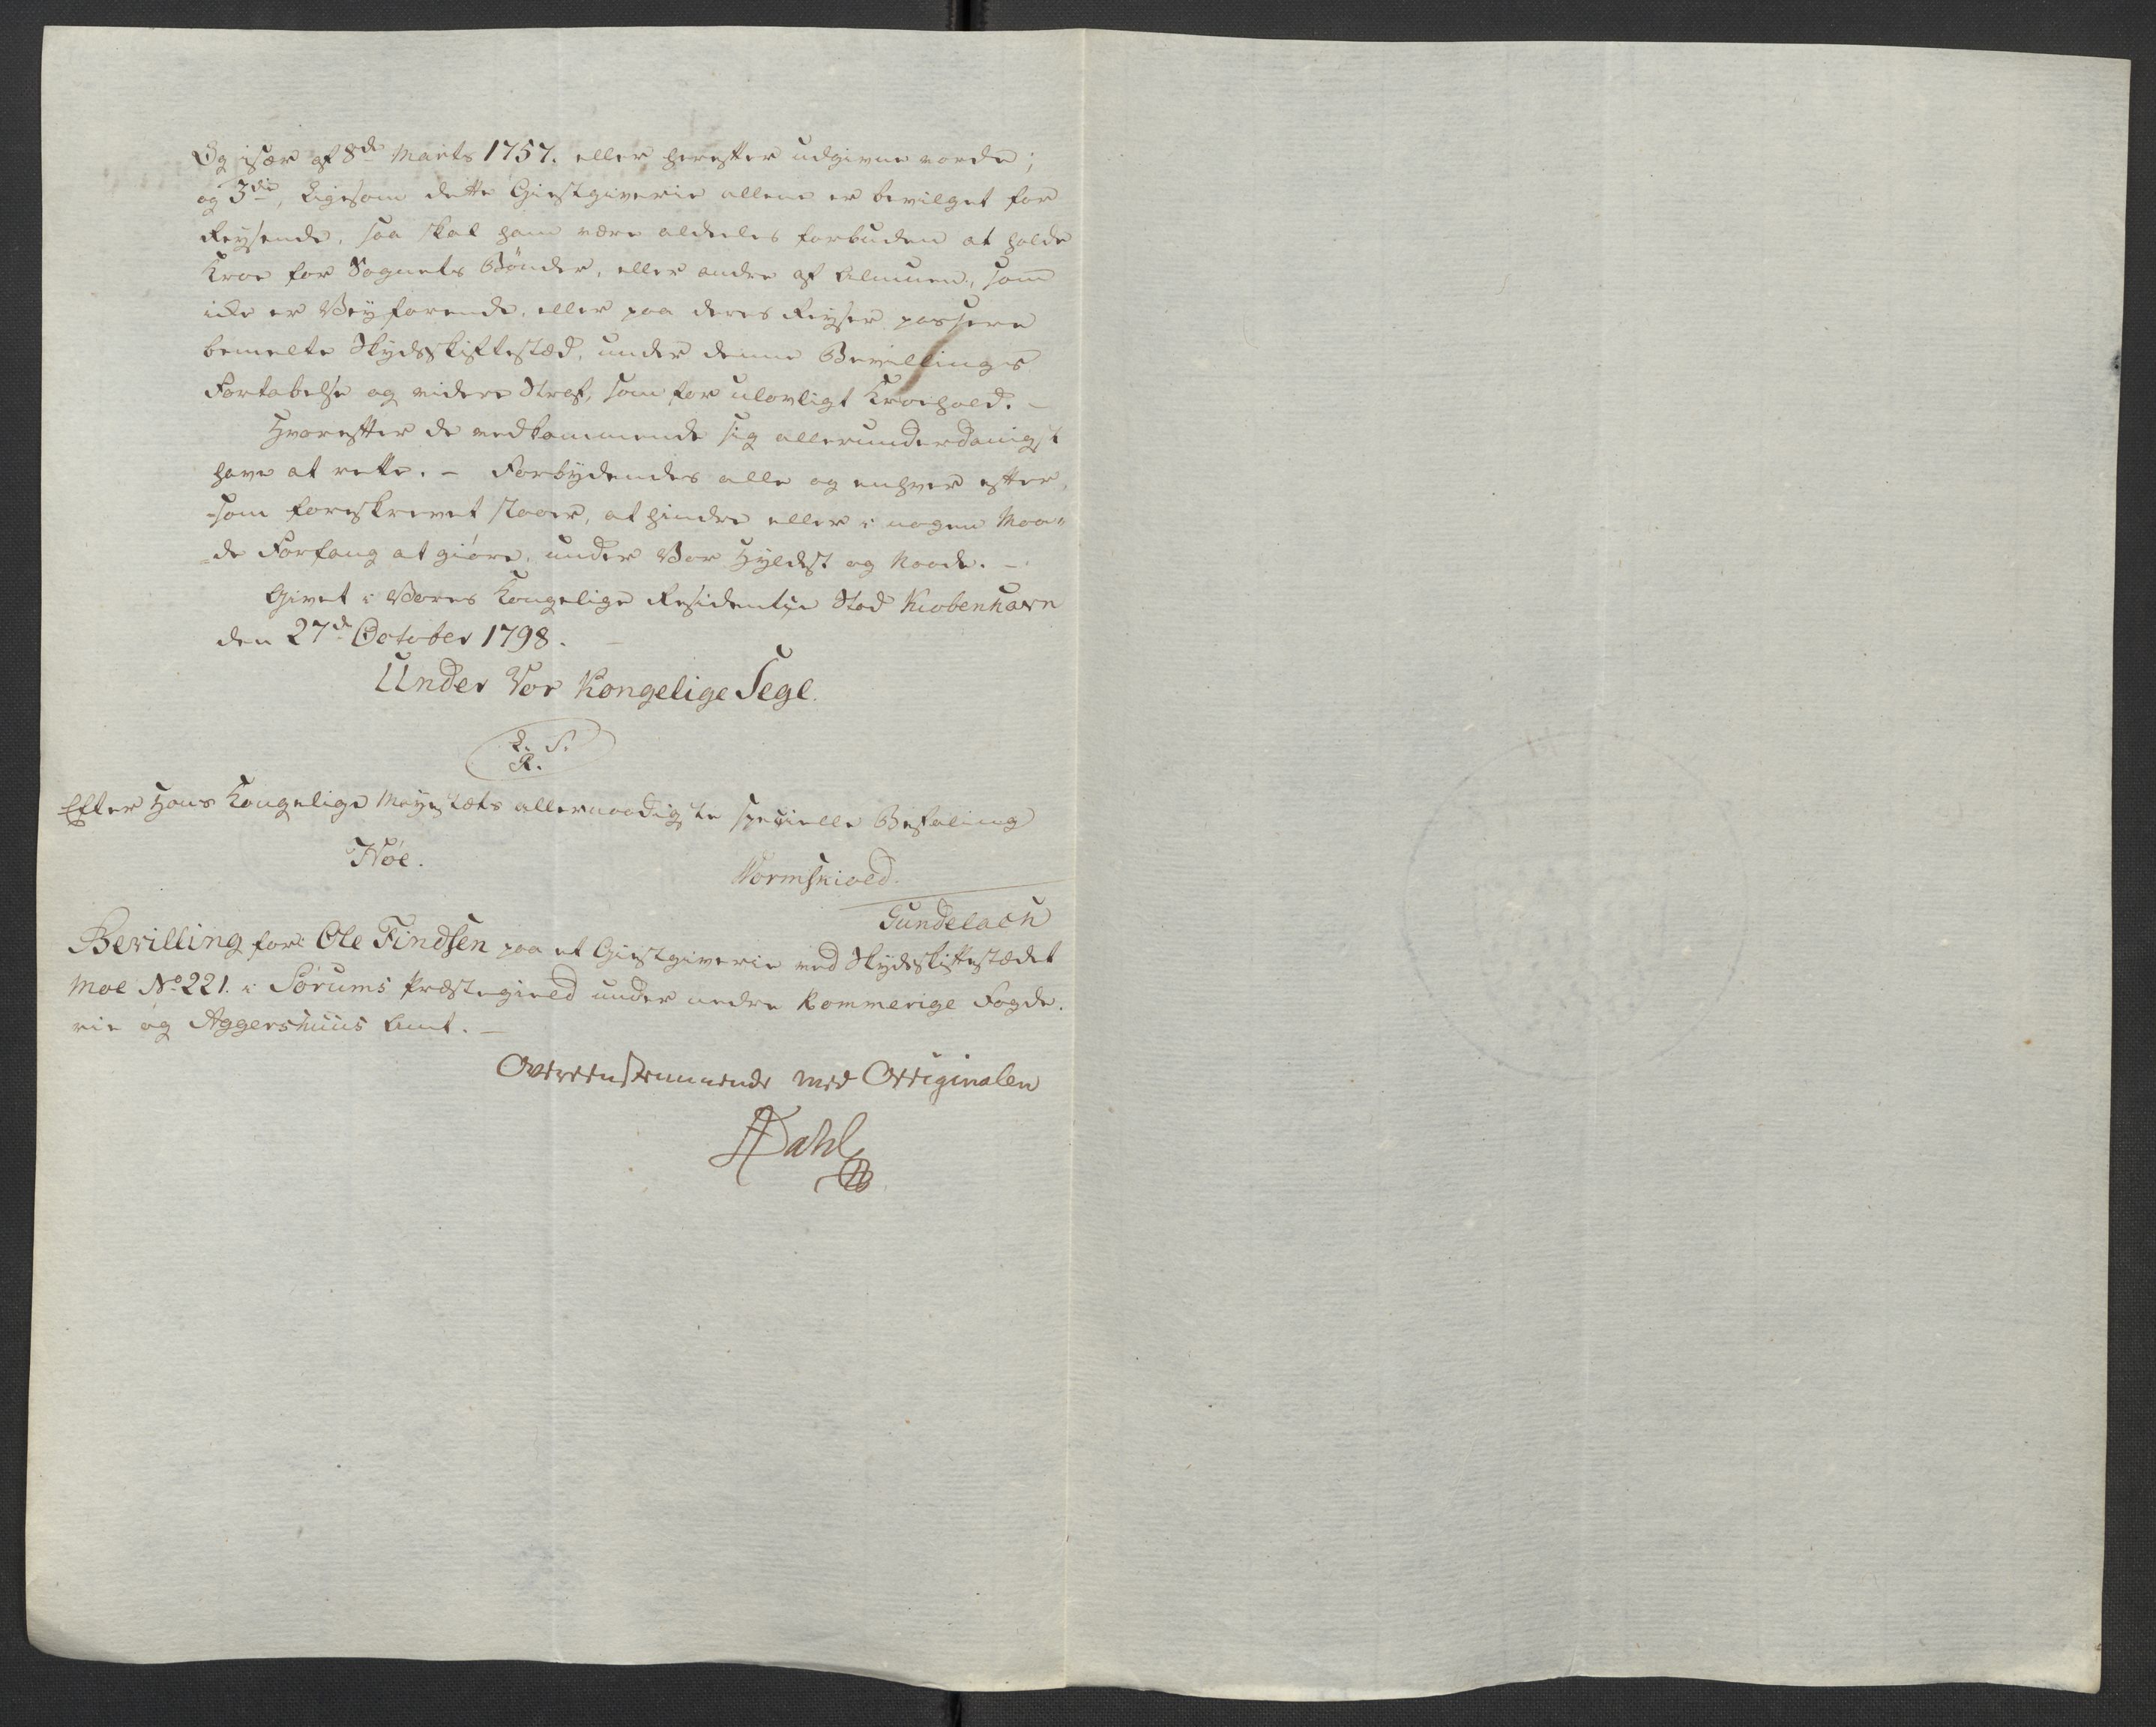 Og især af 8de Marts 1757. eller herefter udgivne vorde;
og 3die, Ligesom dette Giestgiverie allene er bevilget for
Reysende, saa skal ham være aldeeles forbuden at holde
Kroe for Sognets Bönder, eller andre af Almuen, som
icke er Veyfarende, eller paa deres Reyser passere
bemelte Skydsskiftestæd, under denne Bevillings
Fortabelse og videre Straf, som for ulovligt Kroehold. –
Hvorefter de vedkommende sig allerunderdanigst
have at rette. – Forbydendes alle og enhver efter,
som foreskrevet staaer, at hindre eller i nogen Maa=
=de Forfang at giöre, under Vor Hyldest og Naade. –
Givet i Vores Kongelige Residentze Stad Kiobenhavn
den 27d October 1798. –
Under Vor Kongelige Segl.
L. S.
R.
Efter Hans Kongelige Mayestæts allernaadigste specielle Befaling
Höe.
Wormskiold.
Gundelach
Bevilling for: Ole Findsen paa et Giestgiverie ved Skydsskiftestædet
Moe No 221. i Sörums Præstegield under nedre Rommerige Fogde.
rie og Aggershuus Amt. –
Overeenstemmende med Originalen
Dahl